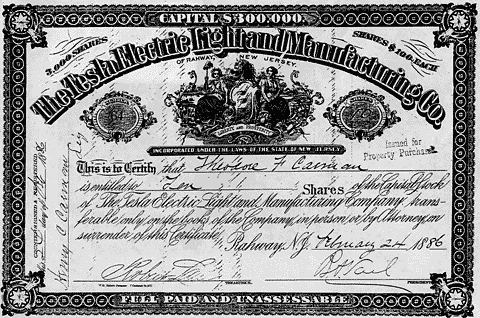 CAPITAL $300,000.
3,000 SHARES
SHARES $100 EACH
The Tesla Electric Light and Manufacturing Co.
OF RAHWAY, NEW JERSEY.
LIBERTY AND PROSPERITY
INCORPORATED UNDER THE LAWS OF THE STATE OF NEW JERSEY.
Issued for
Property Purchase
This is to Certify that Theodore F Carman
is entitled to Ten Shares of the Capital Stock
of The Tesla Electric Light and Manufacturing Company, trans-
ferable only on the books of the Company, in person or by Attorney, on
surrender of this Certificate.
Rahway, N.J. February 24 1886
TREASURER.
PRESIDENT
FULL PAID AND UNASSESSABLE